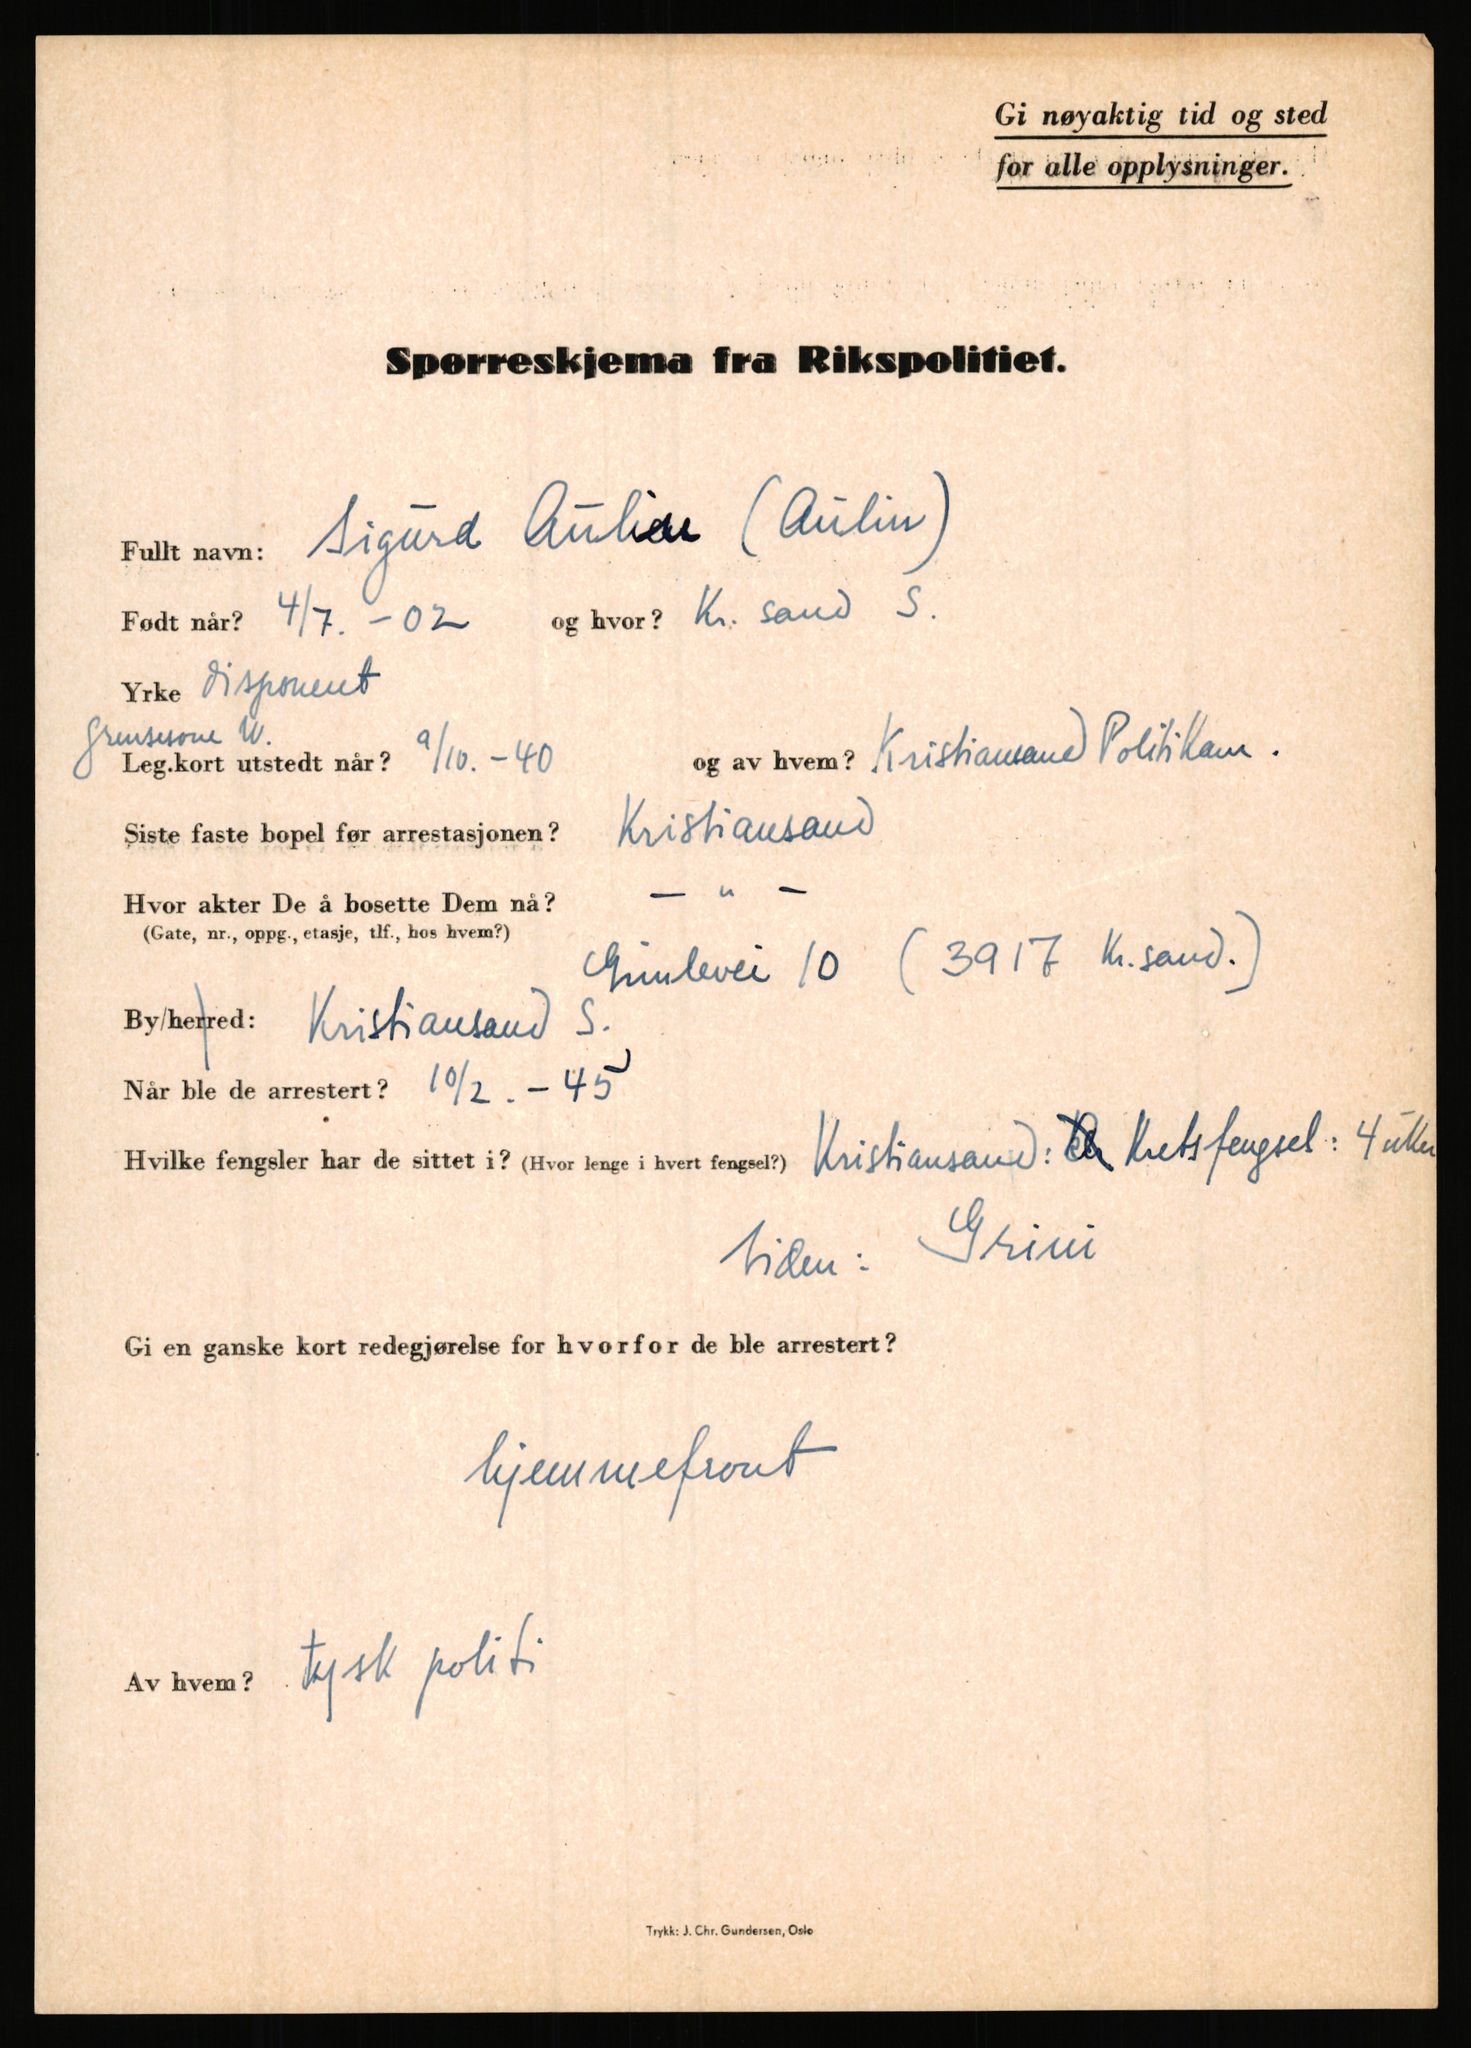 Gi nøyaktig tid og sted
for alle opplysninger.
Spørreskjema fra Rikspolitiet.
Fullt navn: Sigurd Aulin (Aulin)
Født når? 4/7. - 02 og hvor? Kr. sand S.
Yrke disponent
Grensesone W.
Leg.kort utstedt når? 9/10. - 40 og av hvem? Kristiansand Politikam.
Siste faste bopel før arrestasjonen? Kristiansand
Hvor akter De å bosette Dem nå? — " —
(Gate, nr., oppg., etasje, tlf., hos hvem?)
Gimlevei 10 (3917 Kr.sand.)
By/herred: Kristiansand S.
Når ble de arrestert? 10/2. - 45
Hvilke fengsler har de sittet i? (Hvor lenge i hvert fengsel?) Kristiansand: Kretsfengsel: 4 uker
siden: Grini
Gi en ganske kort redegjørelse for hvorfor de ble arrestert?
hjemmefront
Av hvem? tysk politi
Trykk: J. Chr. Gundersen, Oslo